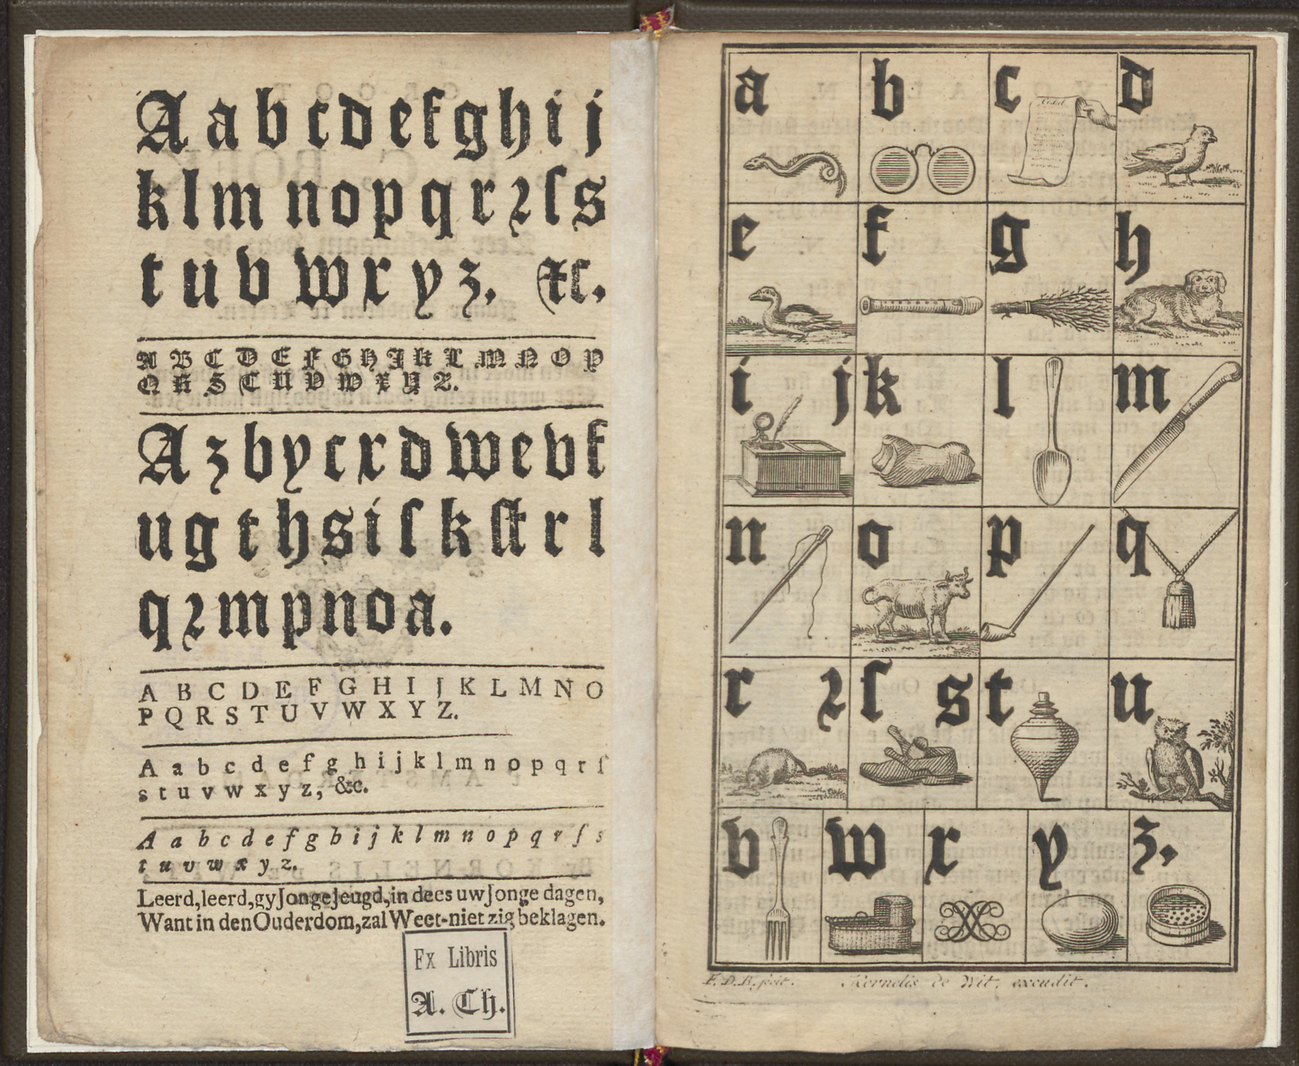 A a b c d e f g h i j
k l m n o p q r ꝛ ſ s
t u v w x y z. &c.
A B C D E F G H J K L M N O P
Q R S T U V W X Y Z.
A z b y c x d w e v f
u g t h s i ſ k ſt r l
q ꝛ m p n o a.
A B C D E F G H I J K L M N O
P Q R S T U V W X Y Z.
A a b c d e f g h i j k l m n o p q r ſ
s t u v w x y z, &c.
A a b c d e f g h i j k l m n o p q r ſ s
t u v w x y z.
Leerd, leerd, gy Jonge Jeugd, in dees uw Jonge dagen,
Want in den Ouderdom, zal Weet-niet zig beklagen.
Ex Libris
A. Ch.
a b c d
e f g h
i j k l m
n o p q
r ꝛ ſ s t u
v w x y z.
Kornelis de Wit, excudit.